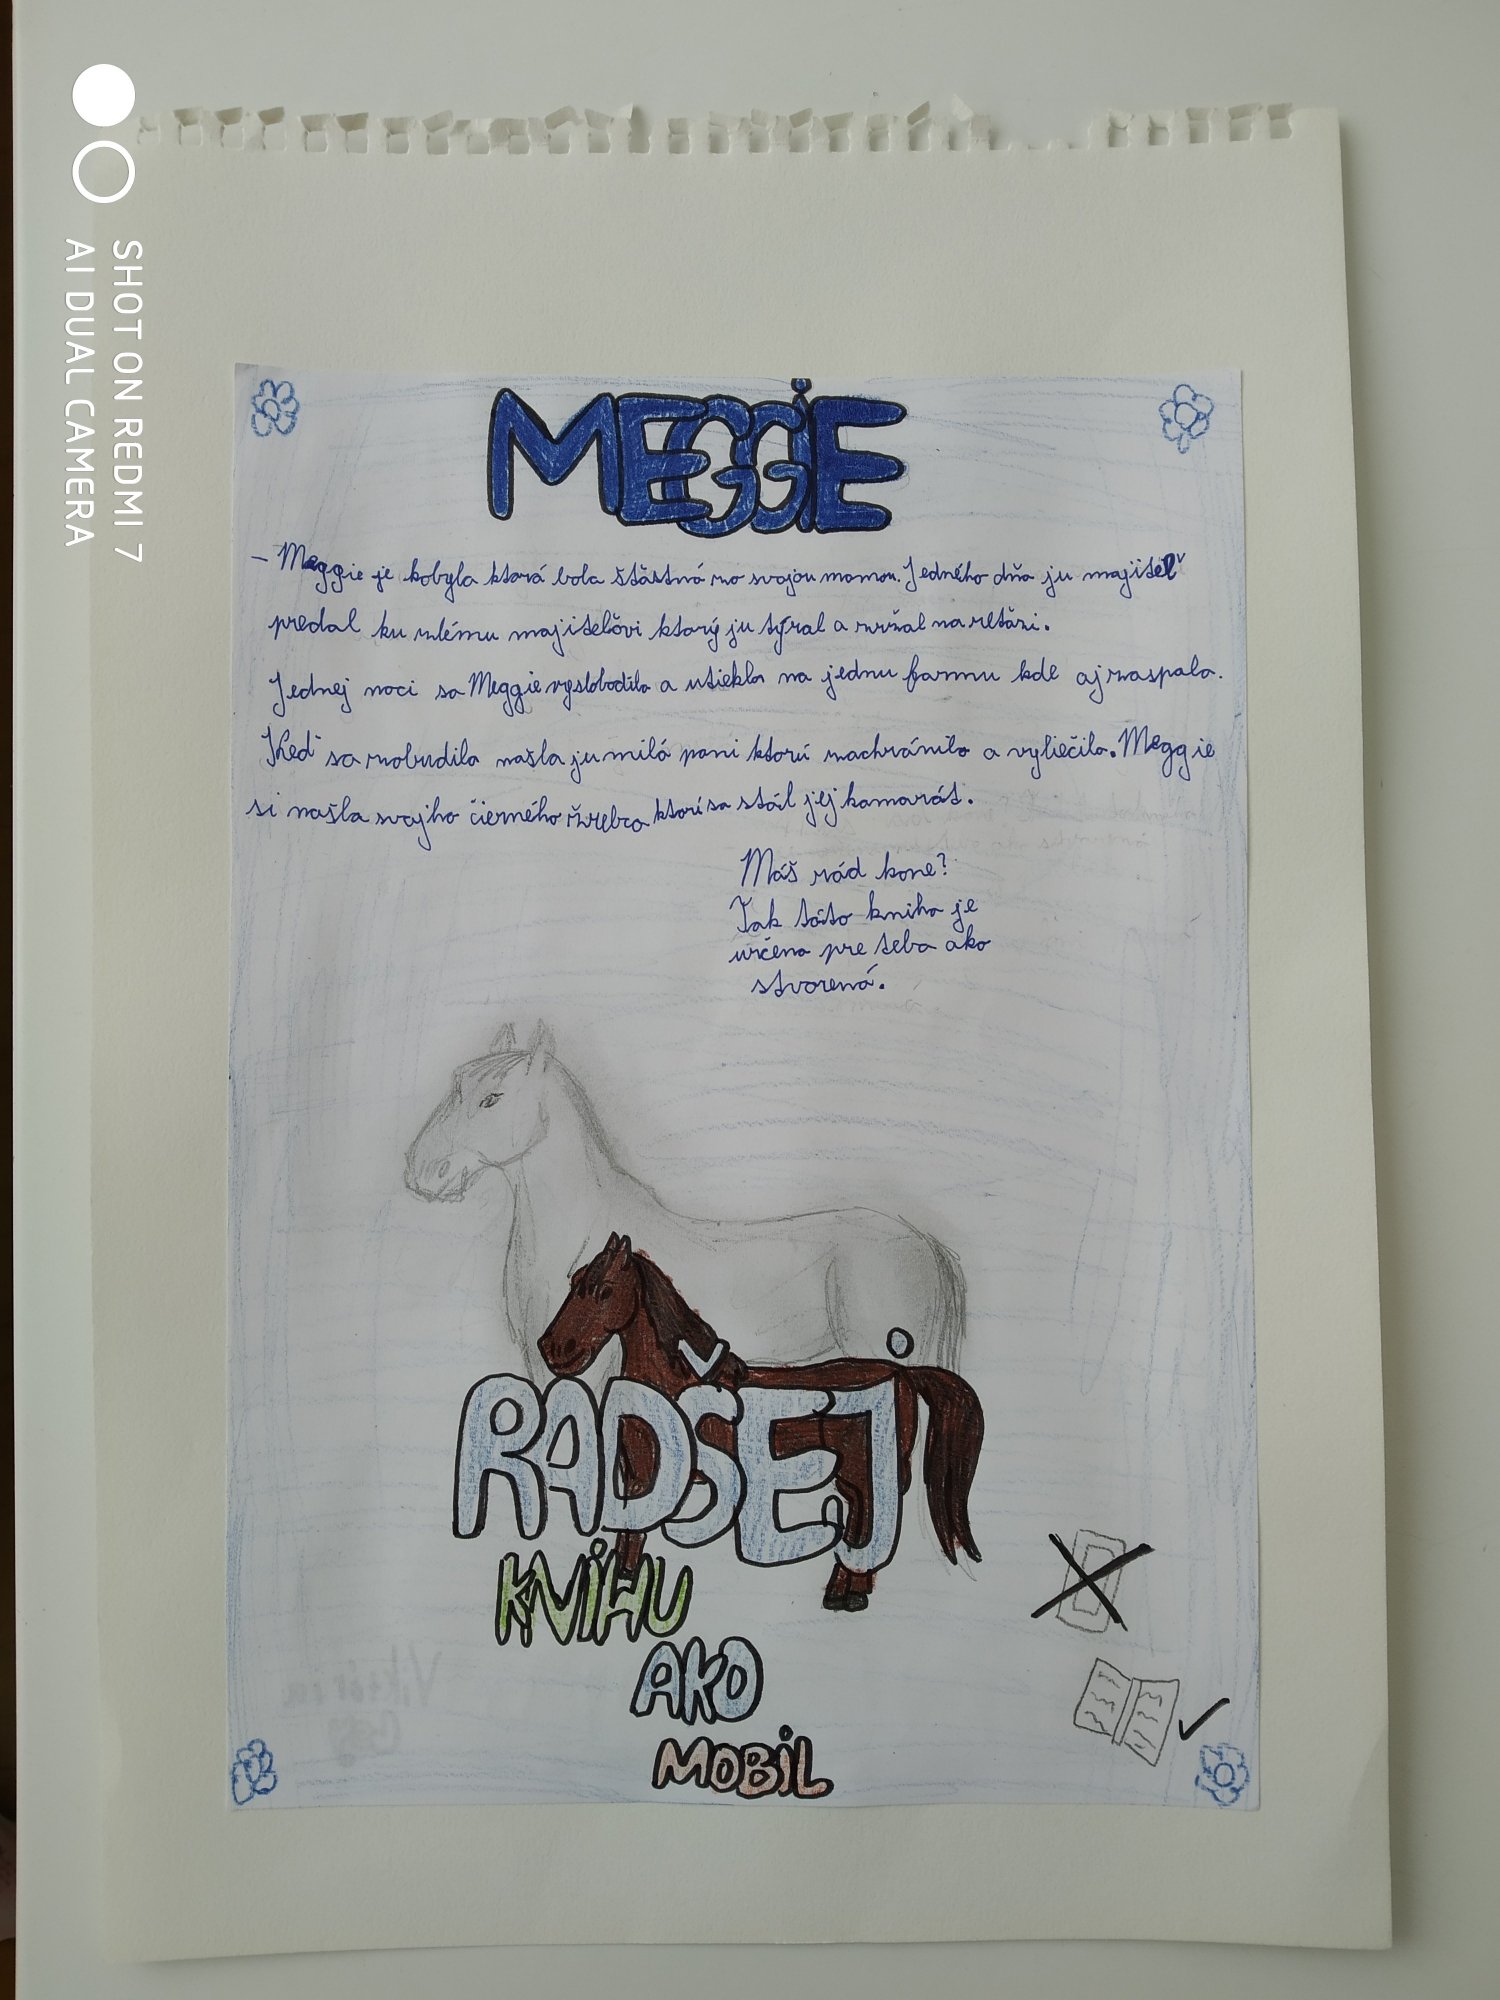 MEGGIE
- Meggie je kobyla ktorá bola štästná zo svojou mamou. Jedného dňa ju majiteľ
predal ku zlému majitelǒvi ktorý ju týral a zvižal na retǎzi.
Jednej noci sa Meggie vyslobodila a utiekla na jednu farmu kde aj zaspala.
Keď sa zobudila našla ju milá pani ktorú zachránila a vyliečila. Meggie
si našla svojho čierného žrebca ktorí sa stál jej kamarát.
Máš rád kone?
Tak táto kniha je
určena pre teba ako
stvorená.
RADŠEJ
KNIHU
AKO
MOBIL
SHOT ON REDMI 7
AI DUAL CAMERA